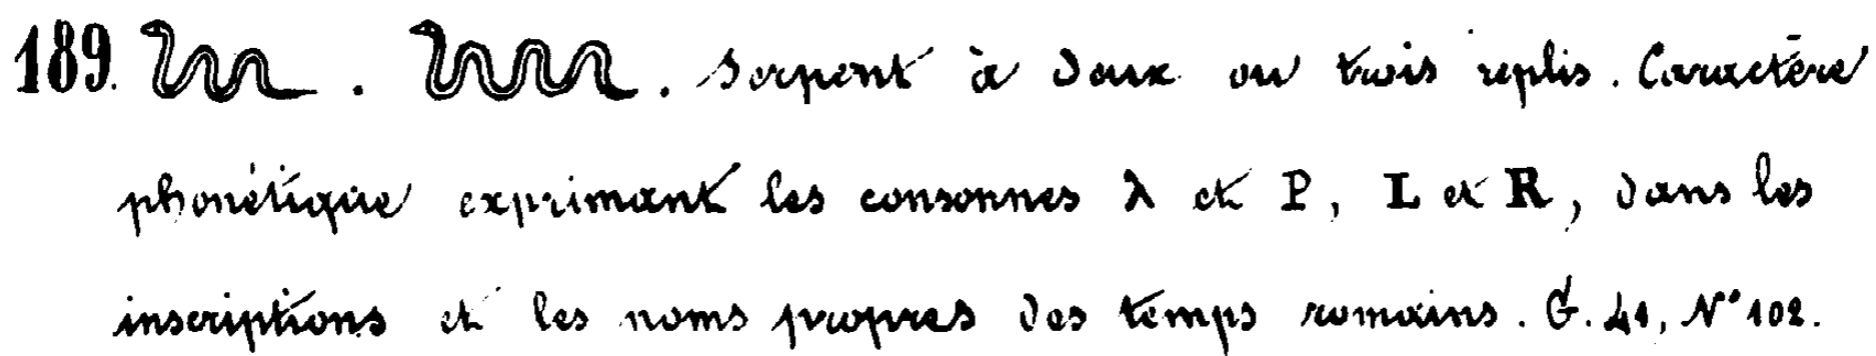 189. . . Serpent à deux ou trois replis. Caractère
phonétique exprimant les consonnes λ et Ρ, L et R, dans les
inscriptions et les noms propres des temps romains. G. 41, N° 102.